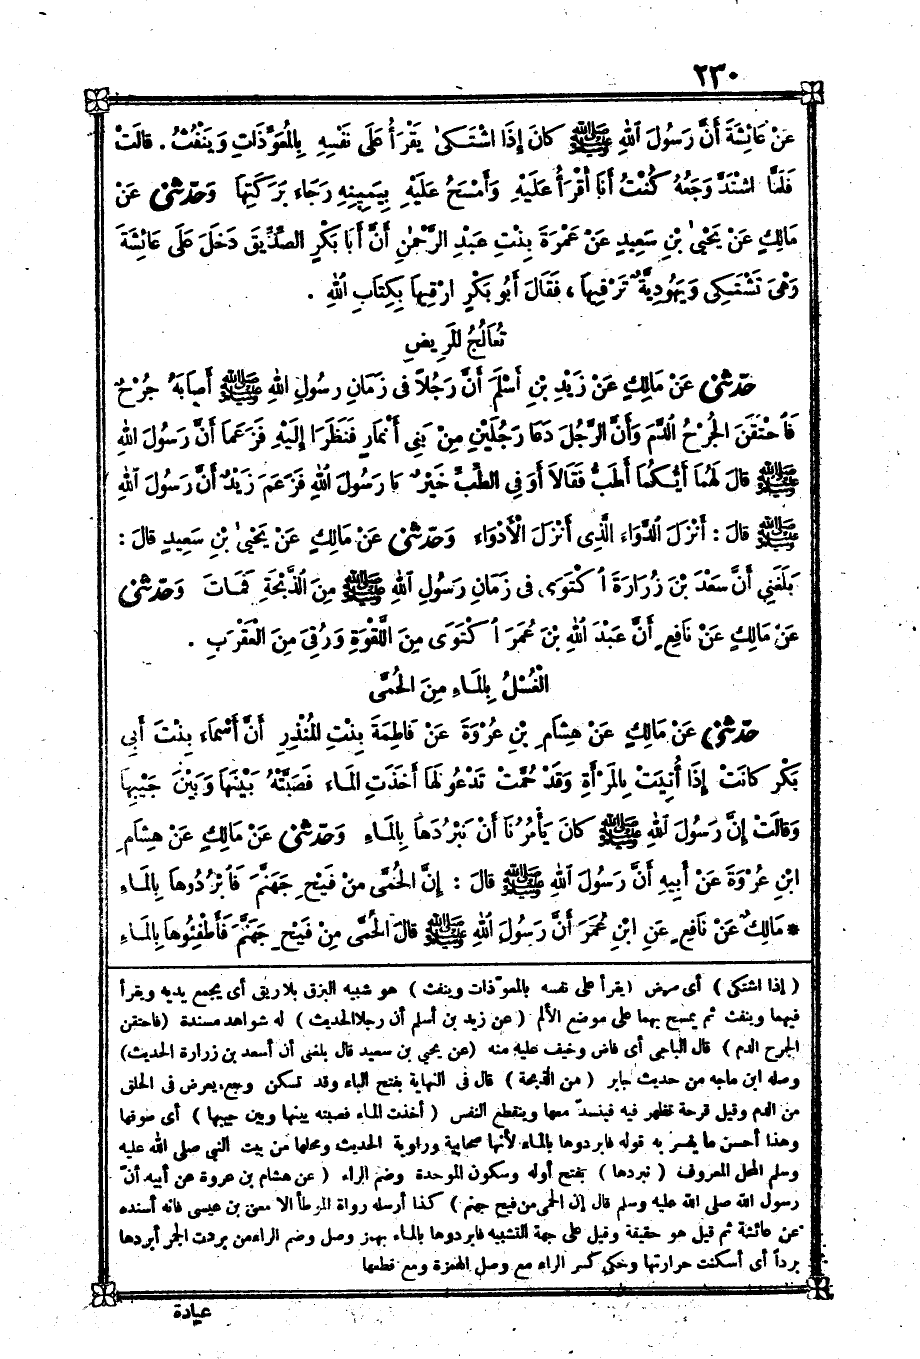 ٢٣٠
عَنْ عَائِشَةَ أَنَّ رَسُولَ اللهِ ﷺ كانَ إِذَا اشْتَكىٰ يَقْرَأُ عَلَى نَفْسِهِ بِالْمُعَوِّذَاتِ وَيَنْفُثُ . قالَتْ
فَلَمَّا اشْتَدَّ وَجَعُهُ كُنْتُ أَنَا أَقْرَأُ عَلَيْهِ وَأَمْسَحُ عَلَيْهِ بِيَمِينِهِ رَجَاءَ بَرَكَتِهَا وَحَدَّثَنِي عَنْ
مَالِكٍ عَنْ يَحْيٰى بْنِ سَعِيدٍ عَنْ عَمْرَةَ بِنْتِ عَبْدِ الرَّحْمٰنِ أَنَّ أَبَا بَكْرٍ الصِّدِّيقَ دَخَلَ عَلَى عَائِشَةَ
وَهْىَ تَشْتَكِى وَيَهُودِيَّةٌ تَرْقِيهَا ، فَقَالَ أَبُو بَكْرٍ ارْقِيهَا بِكِتَابِ اللهِ .
تَعَالُجُ الْمَرِيضِ
حَدَّثَنِي عَنْ مَالِكٍ عَنْ زَيْدِ بْنِ أَسْلَمَ أَنَّ رَجُلاً فى زَمَانِ رسُولِ اللهِ ﷺ أَصَابَهُ جُرْحٌ
فَاحْتَقَنَ الْجُرْحُ الدَّمَ وَأَنَّ الرَّجُلَ دَعَا رَجُلَيْنِ مِنْ بَنِى أَنْمَارٍ فَنَظَرَا إِلَيْهِ فَزَعَمَا أَنَّ رَسُولَ اللهِ
ﷺ قالَ لَهُمَا أَيُّكُمَا أَطَبُّ فَقَالاَ أَوَفِى الطِّبِّ خَيْرٌ يَا رَسُولَ اللهِ فَزَعَمَ زَيْدٌ أَنَّ رَسُولَ اللهِ
ﷺ قالَ : أَنْزَلَ الدَّوَاءَ الَّذِى أَنْزَلَ الْأَدْوَاءَ وَحَدَّثَنِي عَنْ مَالِكٍ عَنْ يَحْيٰى بْنِ سَعِيدٍ قالَ :
بَلَغَنِي أَنَّ سَعْدَ بْنَ زُرَارَةَ اكْتَوَى فى زَمَانِ رَسُولِ اللهِ ﷺ مِنَ الذُّبْحَةِ فَمَاتَ وَحَدَّثَنِي
عَنْ مَالِكٍ عَنْ نَافِعٍ أَنَّ عَبْدَ اللهِ بْنَ عُمَرَ اكْتَوَى مِنَ اللَّقْوَةِ وَرُقِىَ مِنَ الْعَقْرَبِ .
الْغُسْلُ بِالْمَاءِ مِنَ الْحُمَّى
حَدَّثَنِي عَنْ مَالِكٍ عَنْ هِشَامِ بْنِ عُرْوَةَ عَنْ فَاطِمَةَ بِنْتِ الْمُنْذِرِ أَنَّ أَسْمَاءَ بِنْتَ أَبِى
بَكْرٍ كانَتْ إِذَا أُتِيَتْ بِالْمَرْأَةِ وَقَدْ حُمَّتْ تَدْعُو لَهَا أَخَذَتِ الْمَاءَ فَصَبَّتْهُ بَيْنَهَا وَبَيْنَ جَيْبِهَا
وَقالَتْ إِنَّ رَسُولَ اللهِ ﷺ كانَ يَأْمُرُنَا أَنْ نَبْرُدَهَا بِالْمَاءِ وَحَدَّثَنِي عَنْ مَالِكٍ عَنْ هِشَامِ
ابْنِ عُرْوَةَ عَنْ أَبِيهِ أَنَّ رَسُولَ اللهِ ﷺ قالَ : إِنَّ الْحُمَّى مِنْ فَيْحِ جَهَنَّمَ فَابْرُدُوهَا بِالْمَاءِ
* مَالِكٌ عَنْ نَافِعٍ عَنِ ابْنِ عُمَرَ أَنَّ رَسُولَ اللهِ ﷺ قالَ الْحُمَّى مِنْ فَيْحِ جَهَنَّمَ فَأَطْفِئُوهَا بِالْمَاءِ
( إذا اشتكى ) أى مرض (يقرأ على نفسه بالمعوّذات وينفث ) هو شبيه البزق بلا ريق أى يجمع يديه ويقرأ
فيهما وينفث ثم يمسح بهما على موضع الألم ( عن زيد بن أسلم أن رجلا الحديث ) له شواهد مسندة (فاحتقن
الجرح الدم ) قال الباجى أى فاض وخيف عليه منه (عن يحيى بن سعيد قال بلغنى أن أسعد بن زرارة الحديث)
وصله ابن ماجه من حديث جابر ( من الذبحة ) قال فى النهاية بفتح الباء وقد تسكن وجع يعرض فى الحلق
من الدم وقيل قرحة تظهر فيه فينسدّ معها وينقطع النفس ( أخذت الماء فصبته بينها وبين جيبها ) أى طوقها
وهذا أحسن ما يفسر به قوله فابردوها بالماء لأنها صحابية وراوية الحديث ومحلها من بيت النبي صلى الله عليه
وسلم المحل المعروف ( نبردها ) بفتح أوله وسكون الموحدة وضم الراء ( عن هشام بن عروة عن أبيه أنّ
رسول الله صلى الله عليه وسلم قال إن الحمى من فيح جهنم ) كذا أرسله رواة الموطأ الا معن بن عيسى فانه أسنده
عن عائشة ثم قيل هو حقيقة وقيل على جهة التشبيه فابردوها بالماء بهمز وصل وضم الراء من بردت الحمى أبردها
برداً أى أسكنت حرارتها وحكى كسر الراء مع وصل الهمزة ومع قطعها
عيادة